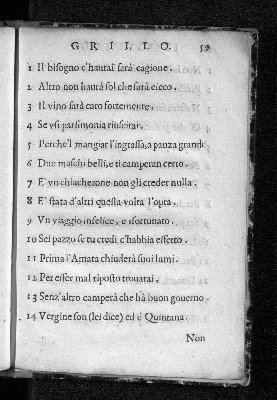 GRILLO. 59
1 Il bisogno c'haurai sarà cagione.
2 Altro non haurà sol che sarà cieco.
3 Il vino sarà caro fortemente.
4 Se vsi parsimonia riuscirai.
5 Perche'l mangiar l'ingrassa, a pauza grande
6 Due maschi belli, e ti camperan certo.
7 E' vn chiacherone non gli creder nulla.
8 E' stata d'altri questa volta l'opra.
9 Vn viaggio infelice, e sfortunato.
10 Sei pazzo se tu credi c'habbia effetto.
11 Prima l'Amata chiuderà suoi lumi.
12 Per esser mal riposto trouarai.
13 Senz'altro camperà che hà buon gouerno.
14 Vergine son (lei dice) ed è Quintana.
Non